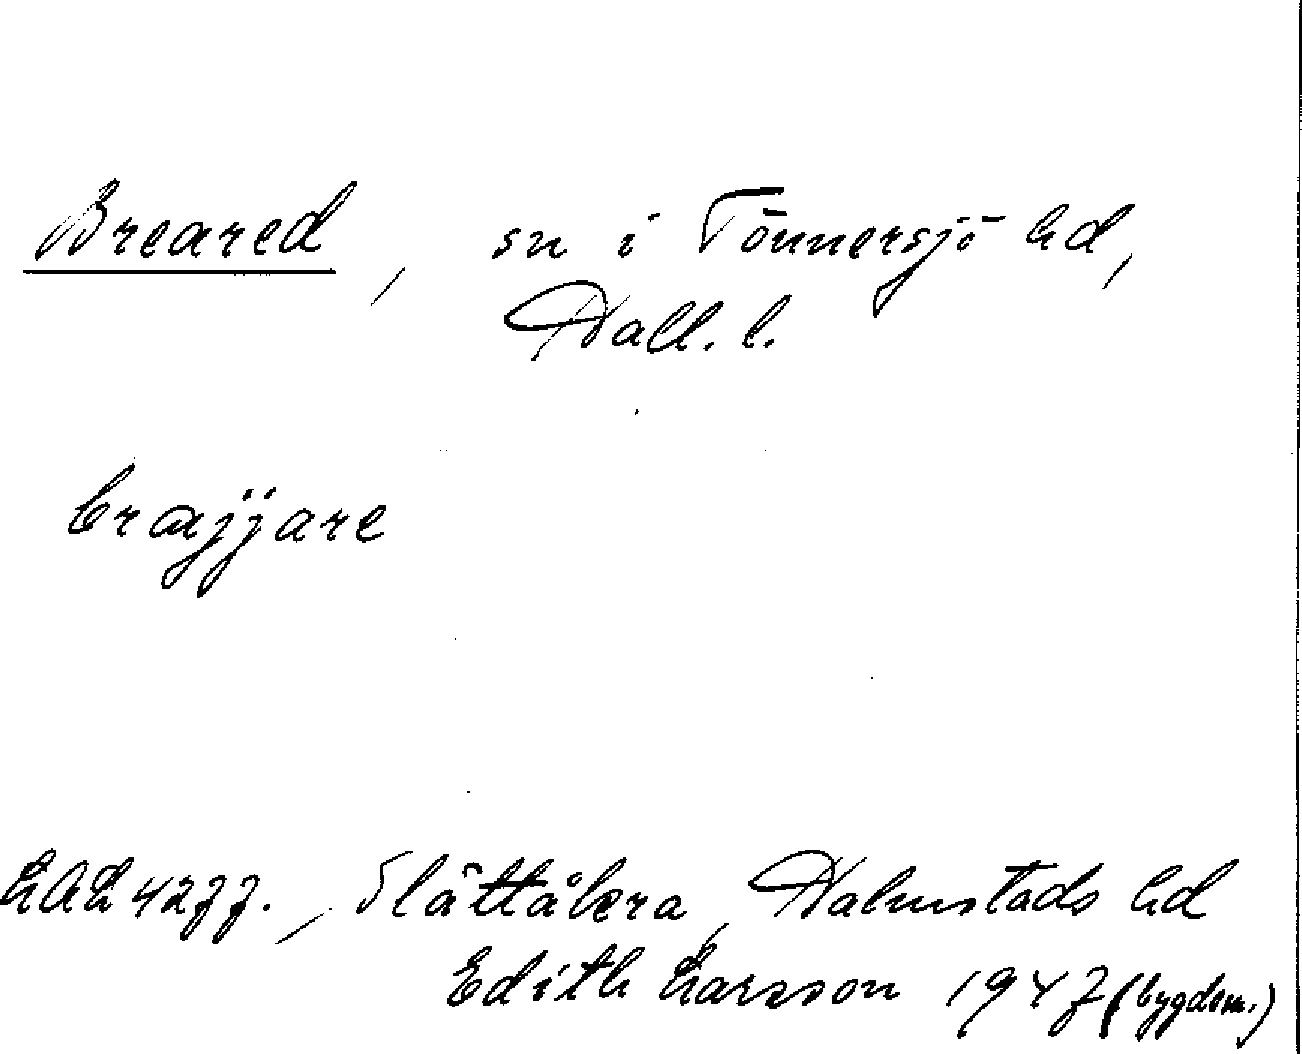 Breared, sn i Tönnersjö hd,
Hall. l.
bræjjare
LAL 4277., Slättåkra, Halmstads hd
Edith Larsson 1947 (bygdem.)